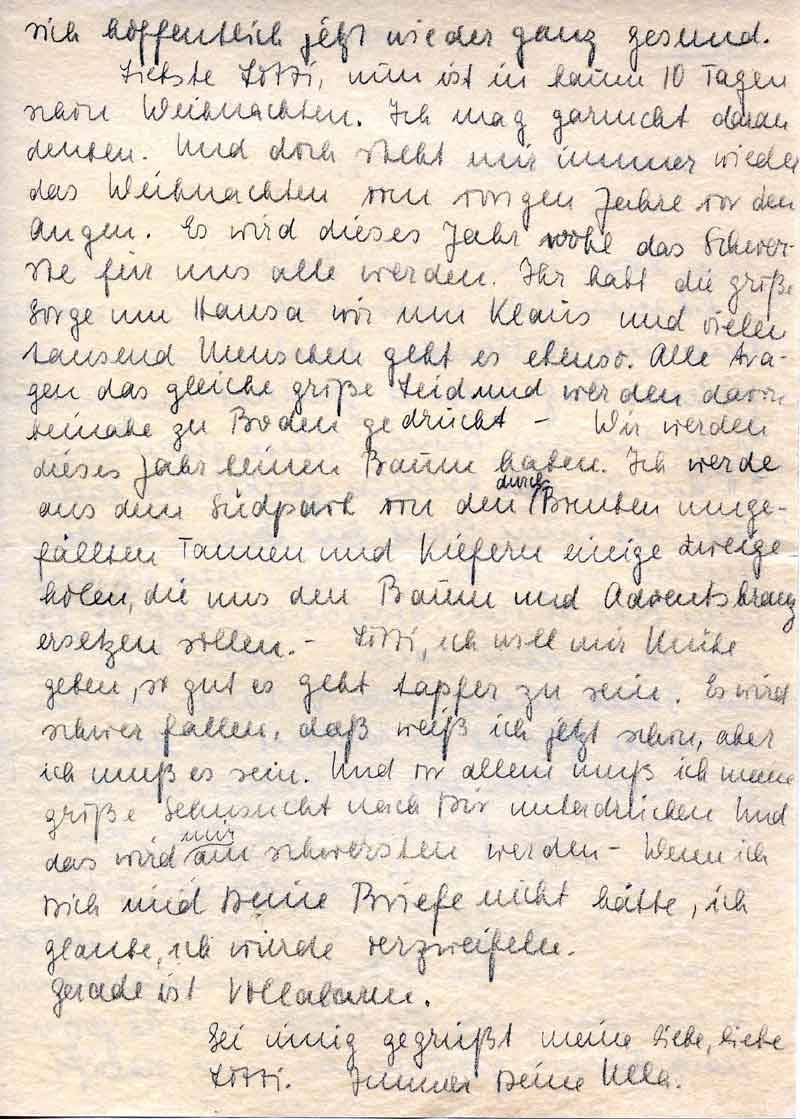 sich hoffentlich jetzt wieder ganz gesund.
Liebste Lotti, nun ist in kaum 10 Tagen
schon Weihnachten. Ich mag garnicht daran
denken. Und doch steht mir immer wieder
das Weihnachten vom vorigen Jahre vor den
Augen. Es wird dieses Jahr wohl das Schwer-
ste für uns alle werden. Ihr habt die große
Sorge um Hansa wir um Klaus und vielen
tausend Menschen geht es ebenso. Alle tra-
gen das gleiche große Leid und werden davon
beinahe zu Boden gedrückt – Wir werden
dieses Jahr keinen Baum haben. Ich werde
aus dem Südpark von den durch Bomben umge-
fällten Tannen und Kiefern einige Zweige
holen, die uns den Baum und Adventskranz
ersetzen sollen. – Lotti, ich will mir Mühe
geben, so gut es geht tapfer zu sein. Es wird
schwer fallen, daß weiß ich jetzt schon, aber
ich muß es sein. Und vor allem muß ich meine
große Sehnsucht nach Dir unterdrücken Und
das wird mir am schwersten werden – Wenn ich
Dich und Deine Briefe nicht hätte, ich
glaube, ich würde verzweifeln.
Gerade ist Vollalarm.
Sei innig gegrüßt meine liebe, liebe
Lotti. Immer Deine Ulla.